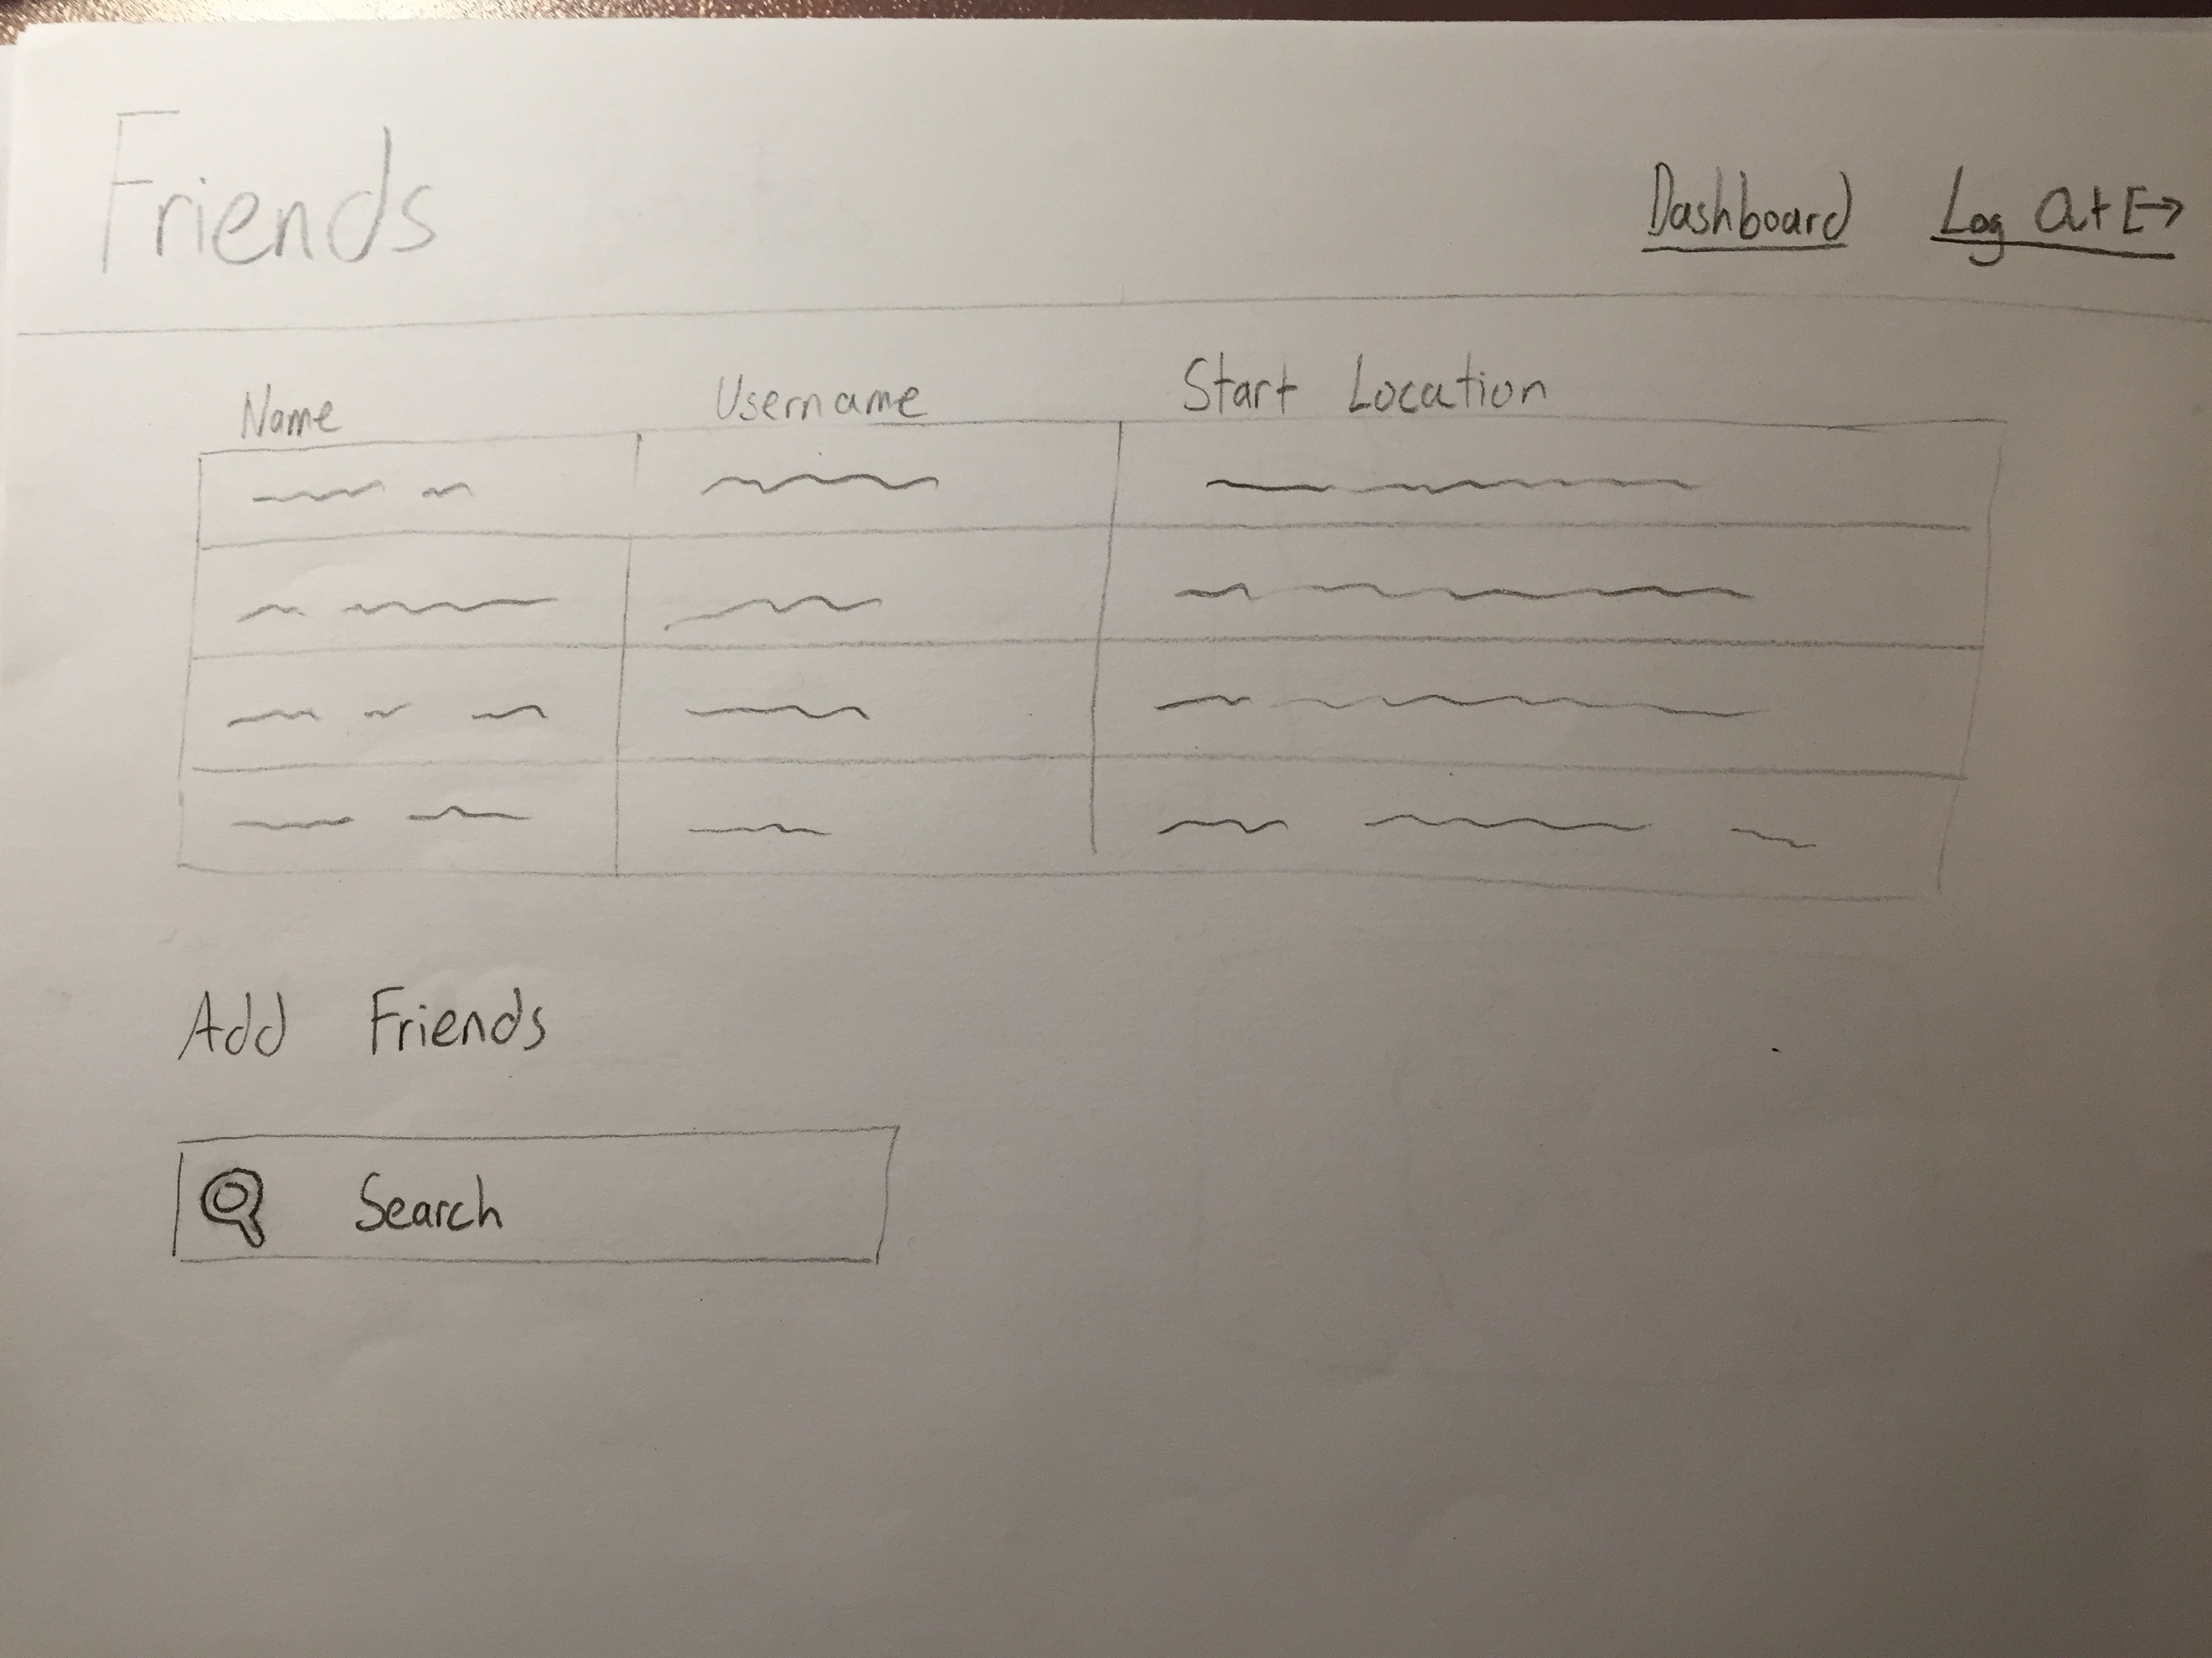 Friends
Dashboard Log Out
Name Username Start Location
Add Friends
Search